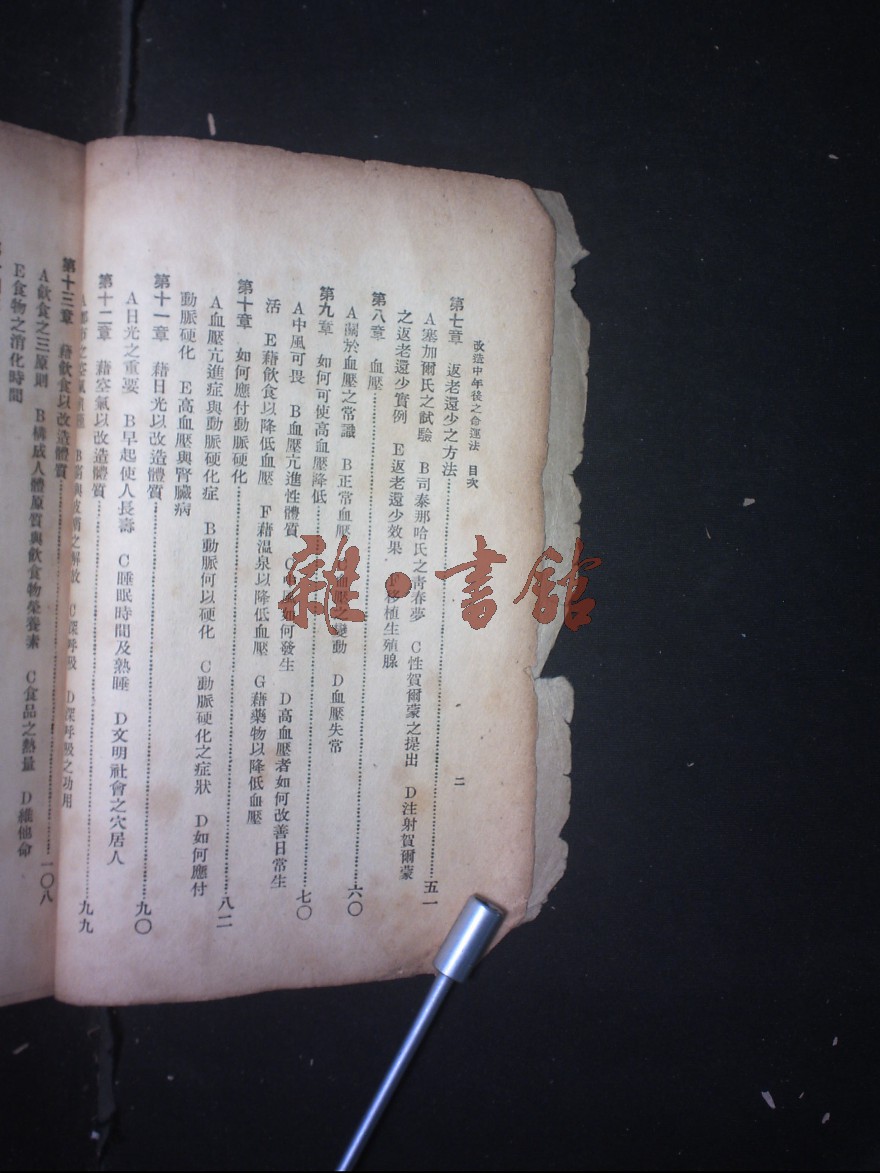 改造中年後之命運法 目次
二
第七章 返老還少之方法……五一
A塞加爾氏之試驗 B司泰那哈氏之青春夢 C性賀爾蒙之提出 D注射賀爾蒙
之返老還少實例 E返老還少效果 F移植生殖腺
第八章 血壓……六〇
A關於血壓之常識 B正常血壓 C血壓之變動 D血壓失常
第九章 如何可使高血壓降低……七〇
A中風可畏 B血壓亢進性體質 C中風如何發生 D高血壓者如何改善日常生
活 E藉飲食以降低血壓 F藉溫泉以降低血壓 G藉藥物以降低血壓
第十章 如何應付動脈硬化……八二
A血壓亢進症與動脈硬化症 B動脈何以硬化 C動脈硬化之症狀 D如何應付
動脈硬化 E高血壓與腎臟病
第十一章 藉日光以改造體質……九〇
A日光之重要 B早起使人長壽 C睡眠時間及熟睡 D文明社會之穴居人
第十二章 藉空氣以改造體質……九九
之解放 C深呼吸 D深呼吸之功用
第十三章 藉飲食以改造體質……一〇八
A飲食之三原則 B構成人體原質與飲食物榮養素 C食品之熱量 D維他命
E食物之消化時間
雜·書館